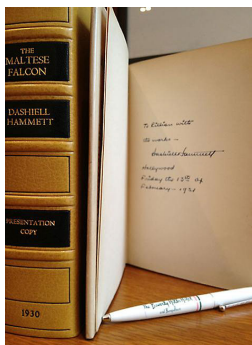 THE
MALTESE
FALCON
DASHIELL
HAMMETT
PRESENTATION
COPY
1930
To Lillian with
all works—
Dashiell Hammett
Hollywood
Friday the 13th of
February—1931